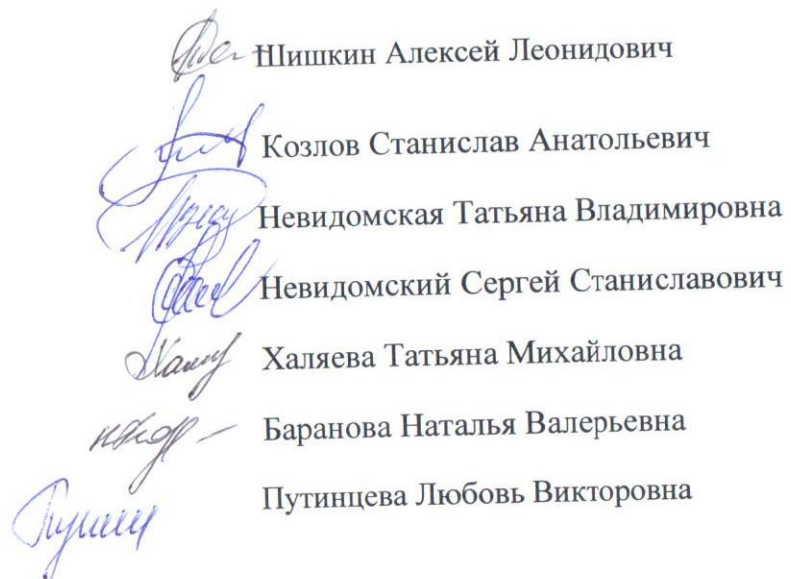 Шишкин Алексей Леонидович
Козлов Станислав Анатольевич
Невидомская Татьяна Владимировна
Невидомский Сергей Станиславович
Халяева Татьяна Михайловна
Баранова Наталья Валерьевна
Путинцева Любовь Викторовна